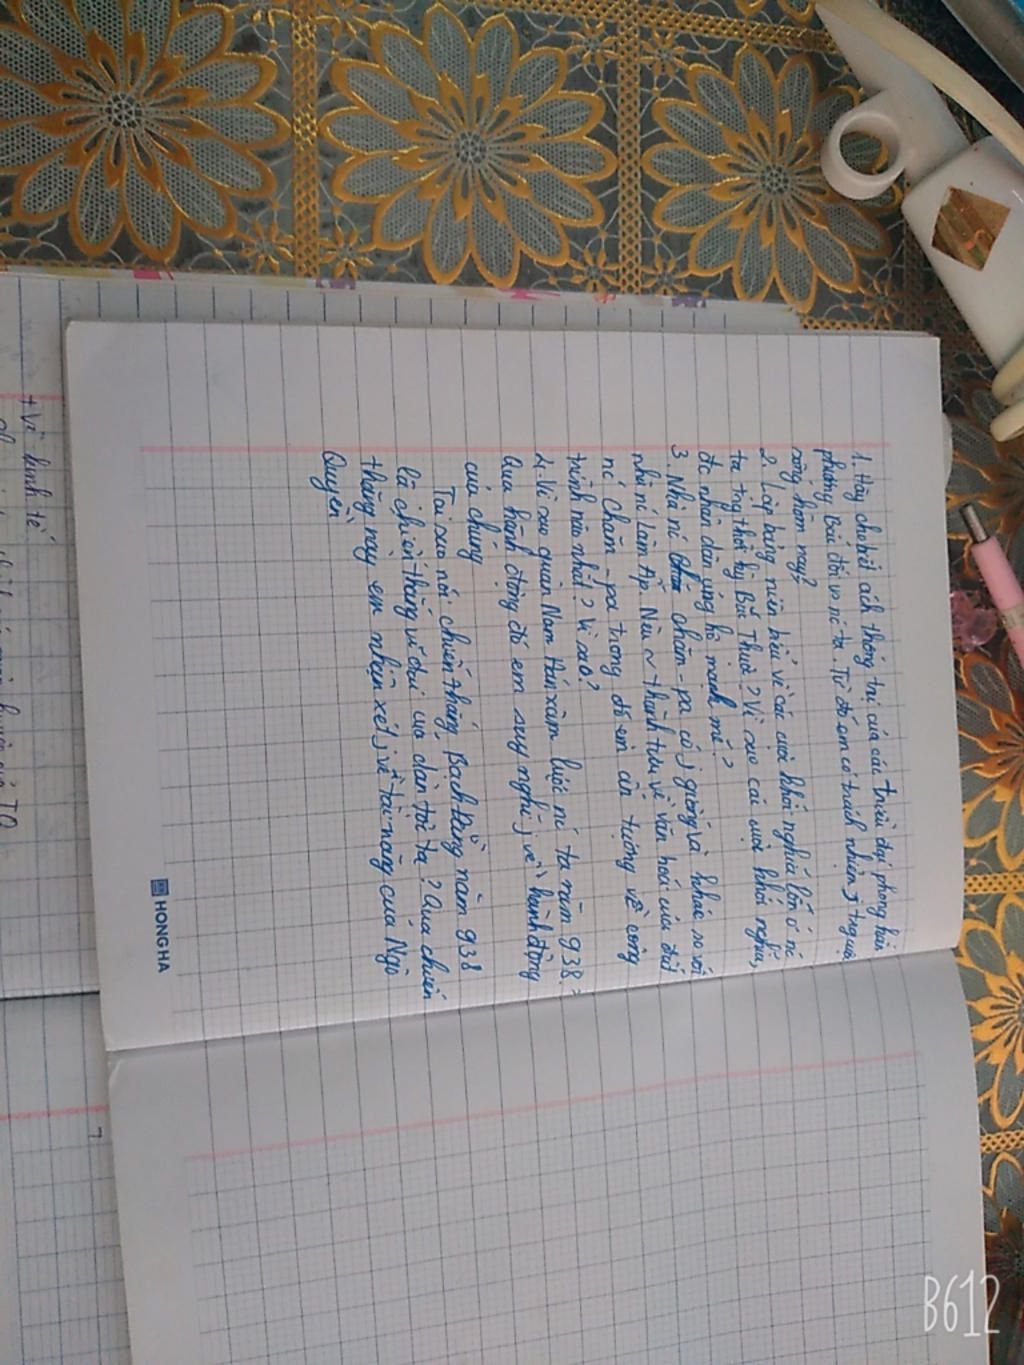 1. Hãy cho biết ách thống trị của các triều đại phong kiến
phương Bắc đối vs nc ta. Từ đó em có trách nhiệm j tr cuộc
sống hôm nay?
2. Lập bảng niên biểu về các cuộc khởi nghĩa lớn ở nc
ta trong thời kỳ Bắc Thuộc? Vì sao cá cuộc khởi nghĩa,
đc nhân dân ủng hộ mạnh mẽ?
3. Nhà nc chăm-pa có j giống và khác so với
nhà nc Lâm Ấp. Nêu ~ thành tựu về văn hoá của đất
nc Chăm-pa trong đó em ấn tượng về công
trình nào nhất? Vì sao?
4. Vì sao quân Nam Hán xâm lược nc ta năm 938?
Qua hành động đó em suy nghĩ j về hành động
của chúng
Tại sao nói chiến thắng Bạch Đằng năm 938
là chiến thắng vĩ đại của dân tộc ta? Qua chiến
thắng này em nhận xét j về tài năng của Ngô
Quyền
HONG HA
+ Về kinh tế
TQ
B612